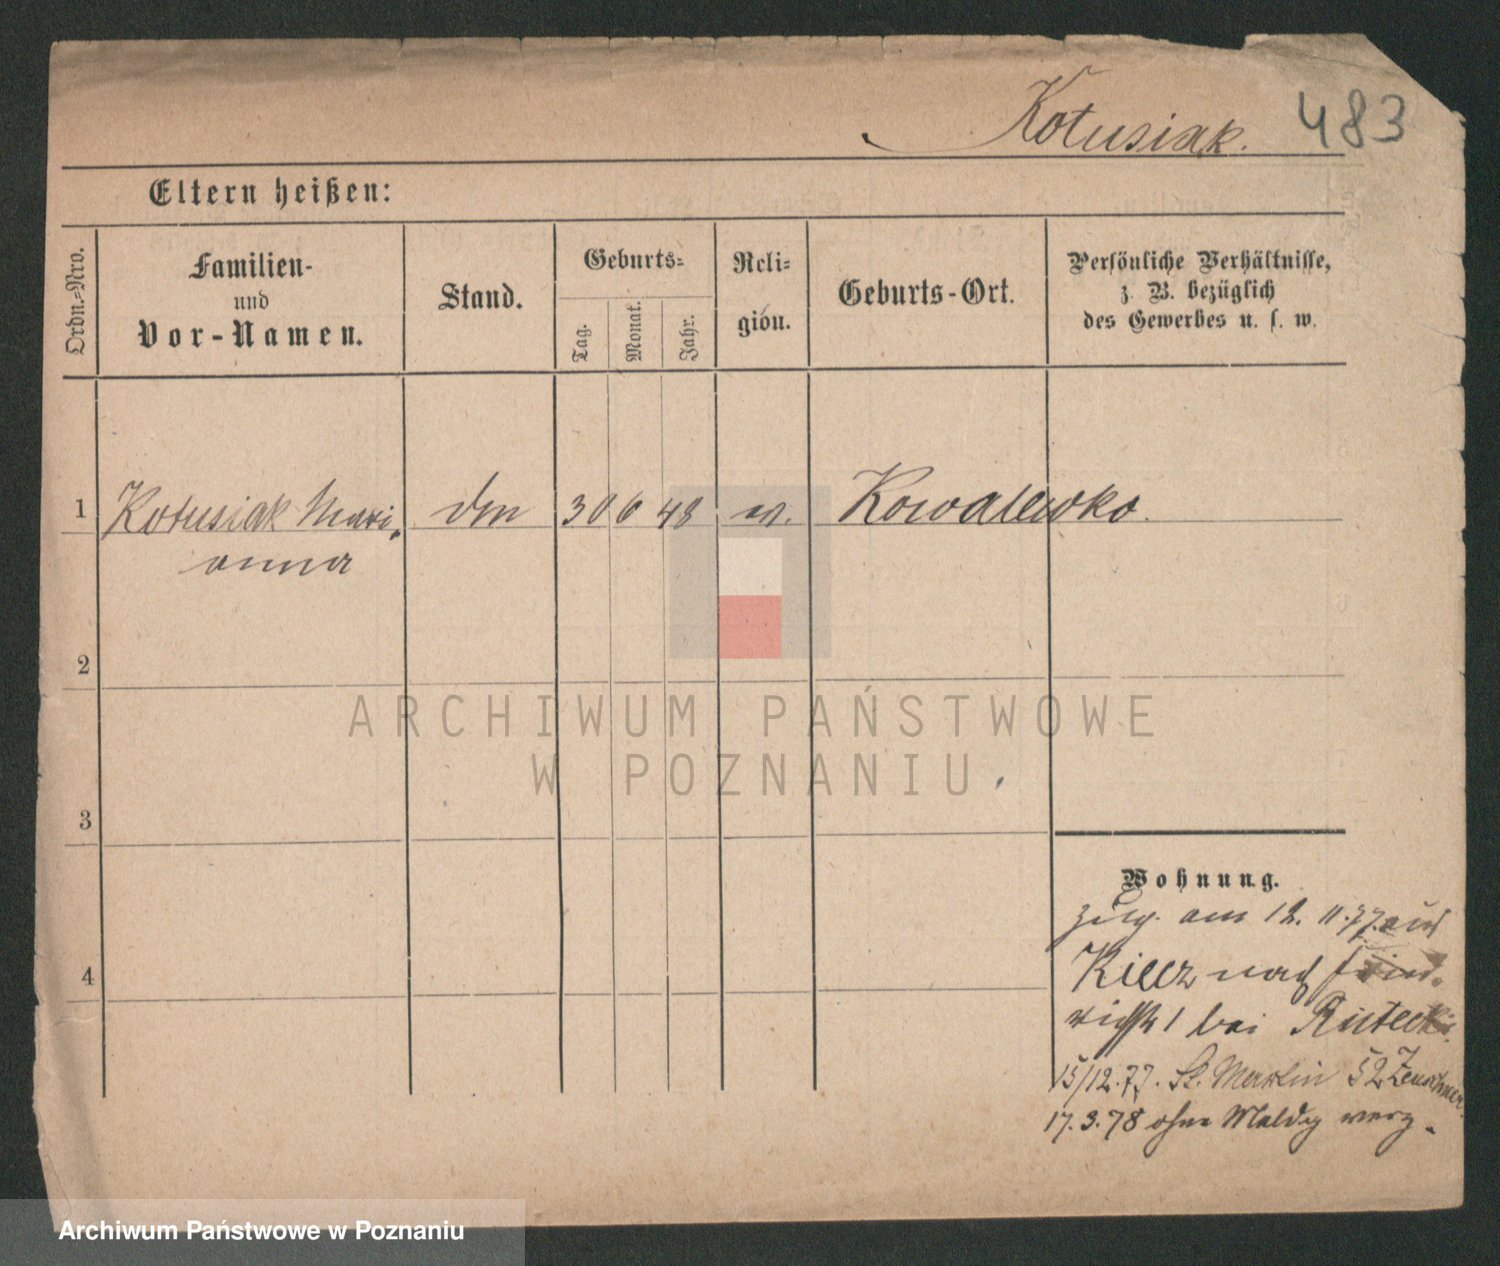 Kotusiak. 483
Eltern heißen:
Ordn.=Nro.
Familien-
und
Vor-Namen.
Stand.
Geburts=
Tag.
Monat.
Jahr.
Reli=
gion.
Geburts-Ort.
Persönliche Verhältnisse,
z. B. bezüglich
des Gewerbes u. s. w.
1 Kotusiak Mari, 30 6 48 Kowalewko.
anna
2
3
4
Wohnung.
zug. am 12. 11. 77. aus
nach Fried-
richstr 1 bei Rutecki.
15/12.77. St. Martin 52
17.3.78 ohne Meldg verz.
ARCHIWUM PAŃSTWOWE
W POZNANIU
Archiwum Państwowe w Poznaniu